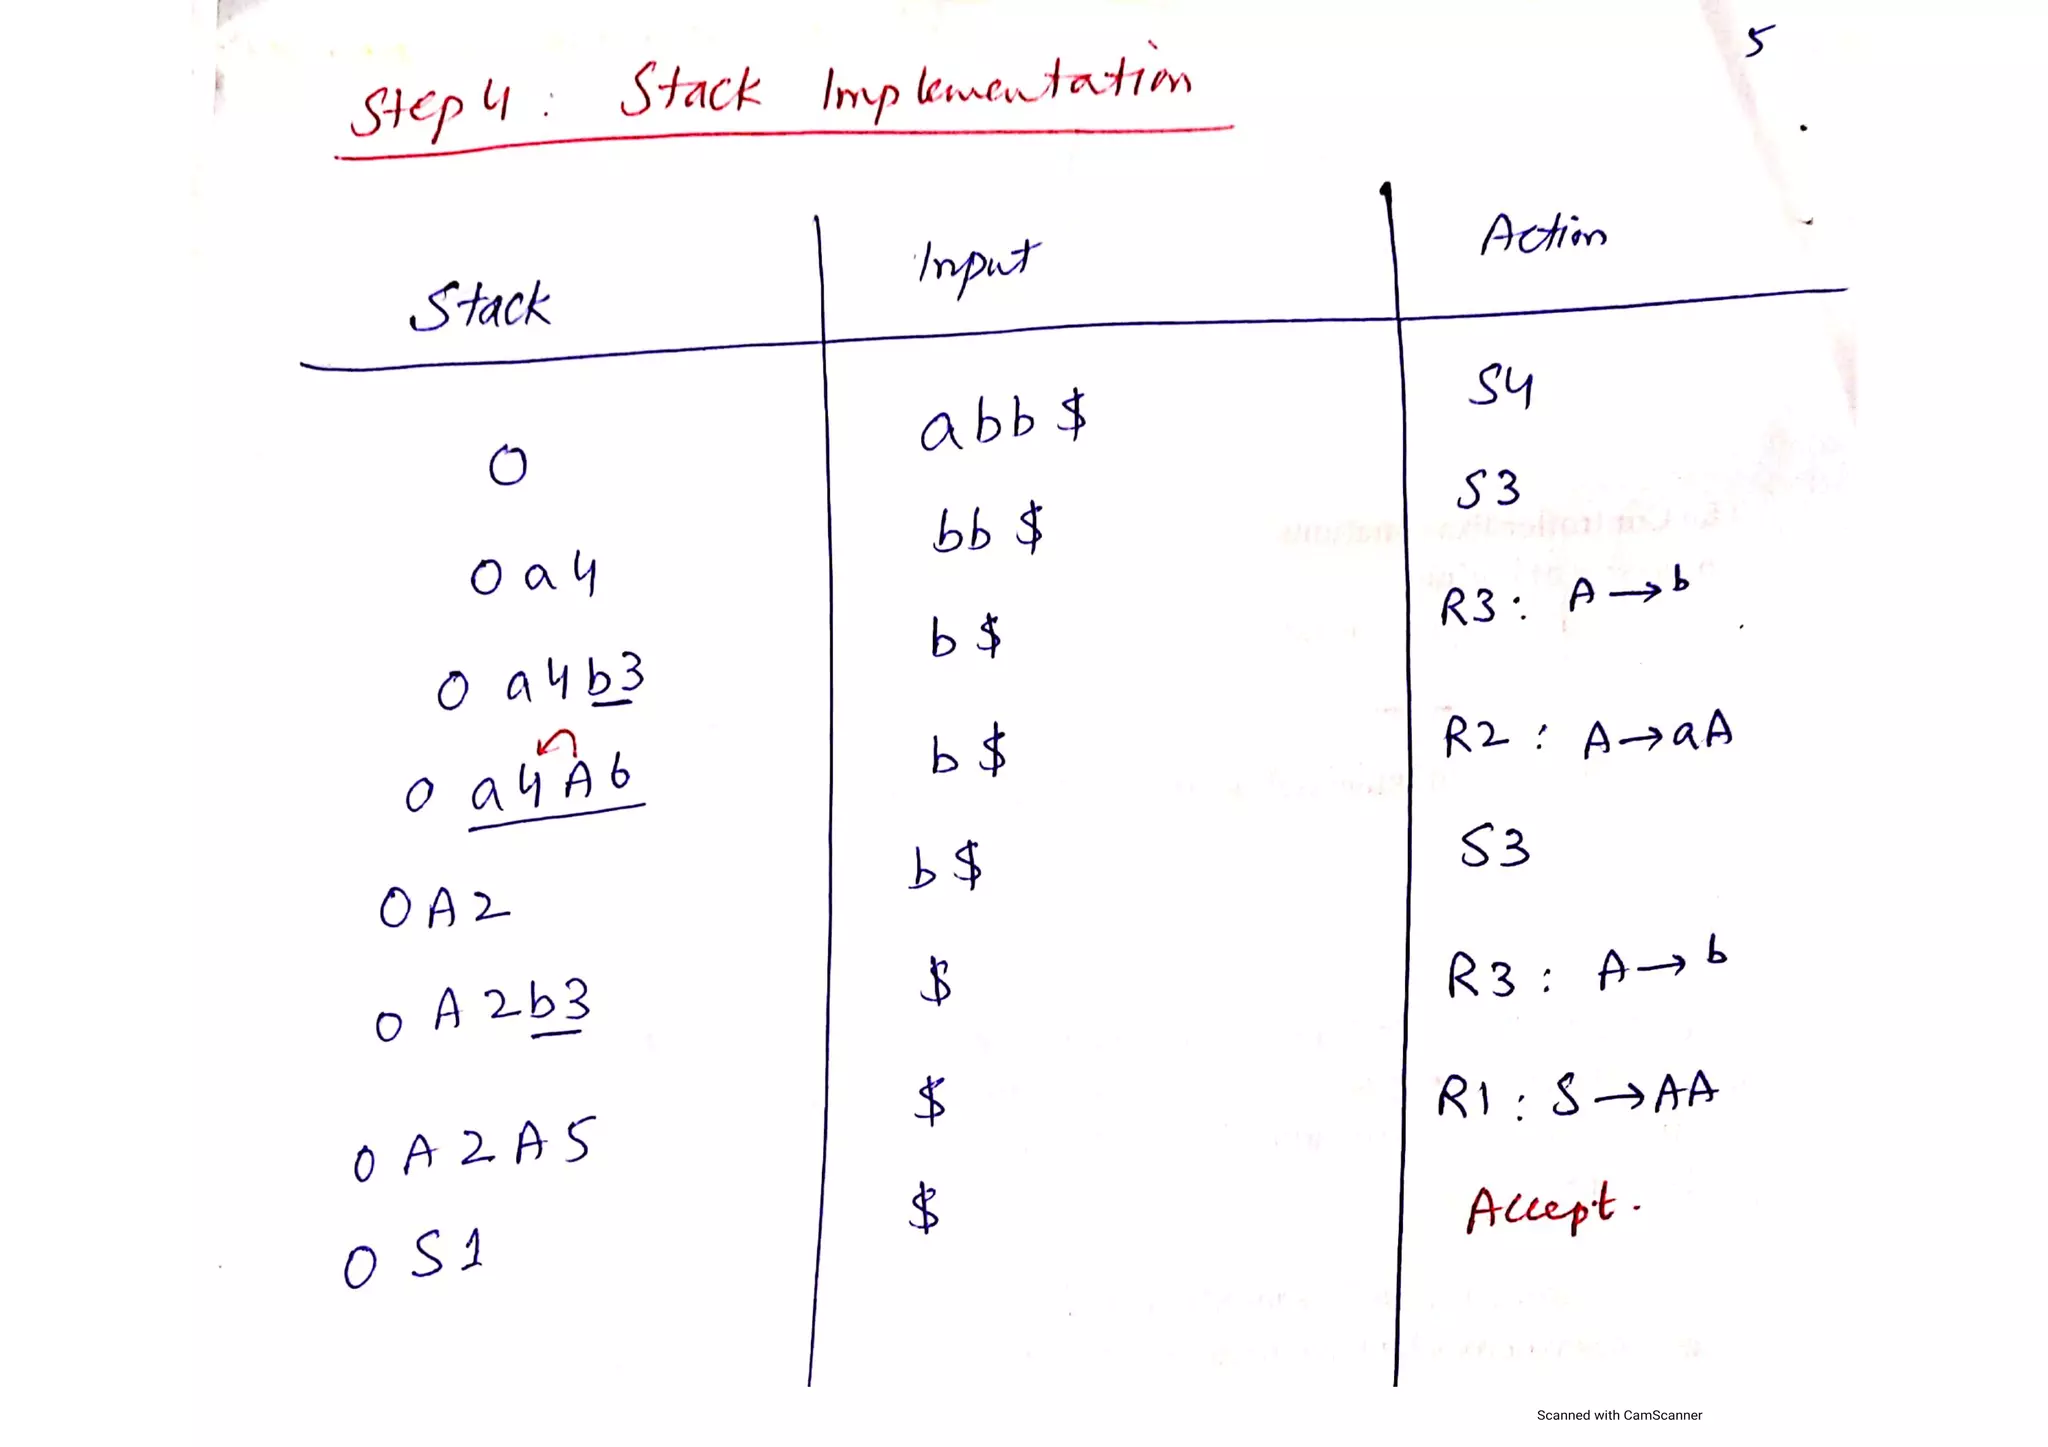 5
Step 4 : Stack Implementation
Stack Input Action
0 abb $ S4
0 a 4 bb $ S3
0 a 4 b 3 b $ R3 : A → b
0 a 4 A 6 b $ R2 : A → aA
0 A 2 b $ S3
0 A 2 b 3 $ R3 : A → b
0 A 2 A 5 $ R1 : S → AA
0 S 1 $ Accept.
Scanned with CamScanner